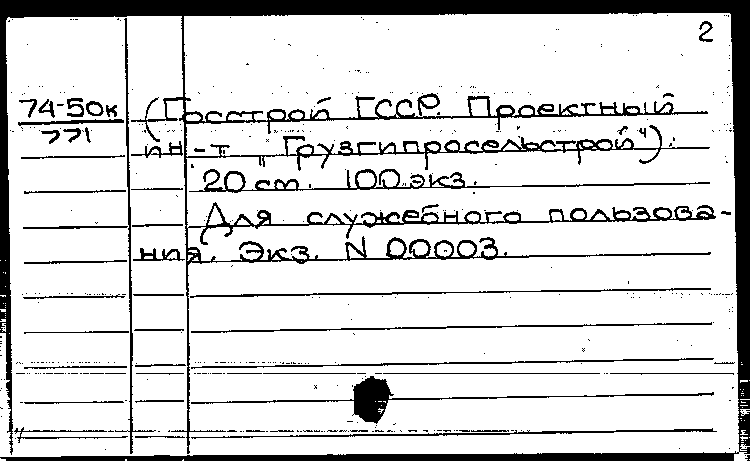 2
74-50к (Госстрой ГССР. Проектный
771 ин-т „Грузгипросельстрой").
20 см. 100 экз.
Для служебного пользова-
ния. Экз. N 00003.